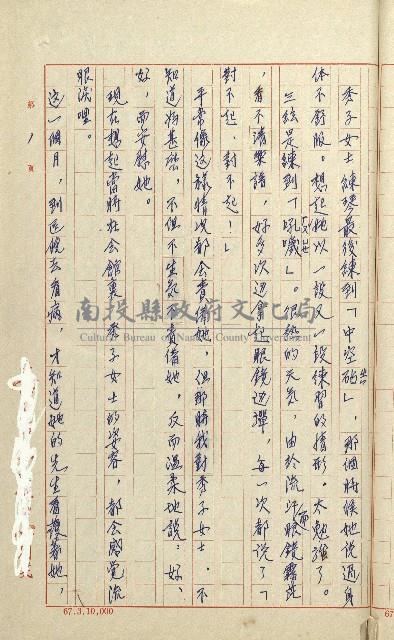 秀子女士練琴最後練到「中空砧」,那個時候她說過身
体不舒服。想起她以一段又一段練習的情形。太勉強了。
三絃是練到「吼噦」。很熱的天氣,由於流汗而眼鏡霧茫
,看不清樂譜,好多次邊拿起眼鏡邊彈,每一次都說了「
對不起、對不起!」
平常像這樣情況都會責備她,但那時我對秀子女士,不
知道為甚麼,不但不生氣責備她,反而溫柔地說:好、
好,而安慰她。
現在想起當時在會館裏秀子女士的姿容,都會感覺流
眼淚哩。
這一個月,到医院去看病,才知道她的先生看護著她,
第 頁
南投縣政府文化局
Cultural Bureau of Nantou County Government
67.3.10,000
67